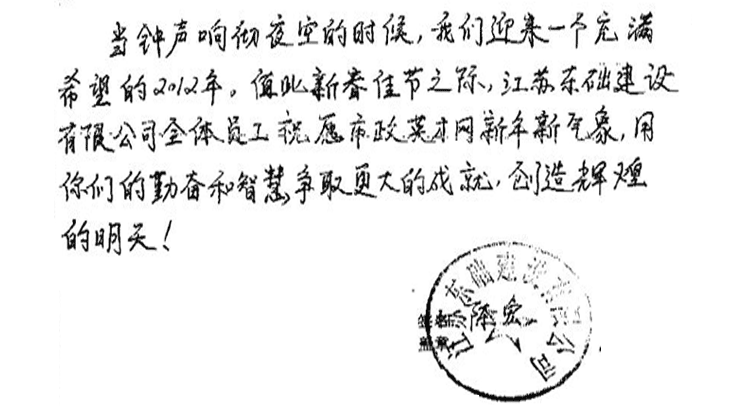 当钟声响彻夜空的时候，我们迎来一个充满
希望的2012年。值此新春佳节之际，江苏东础建设
有限公司全体员工祝愿市政英才网新年新气象，用
你们的勤奋和智慧争取更大的成就，创造辉煌
的明天！
江苏东础建设有限公司
签名
盖章